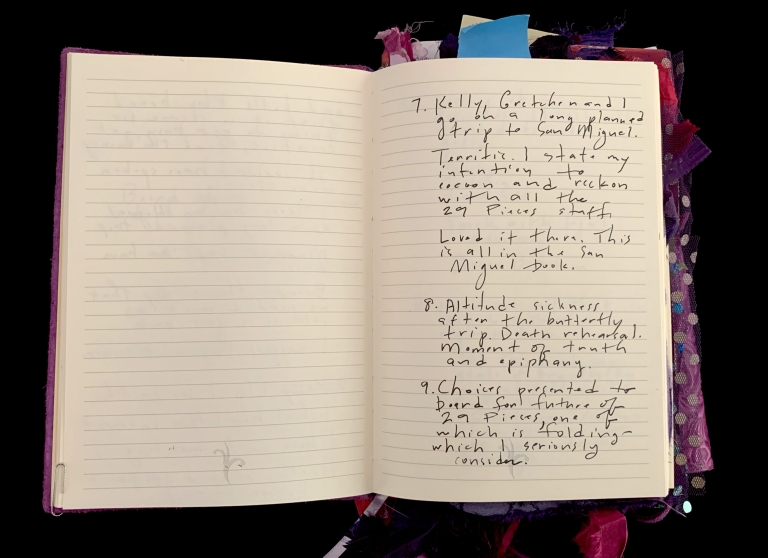 7. Kelly, Gretchen and I
go on a long planned
trip to San Miguel.
Terrific. I state my
intention to
cocoon and reckon
with all the
29 Pieces stuff
Loved it there. This
is all in the San
Miguel book.
8. Altitude sickness
after the butterfly
trip. Death rehearsal.
Moment of truth
and epiphany.
9. Choices presented to
board for future of
29 Pieces, one of
which is folding-
which I seriously
consider.